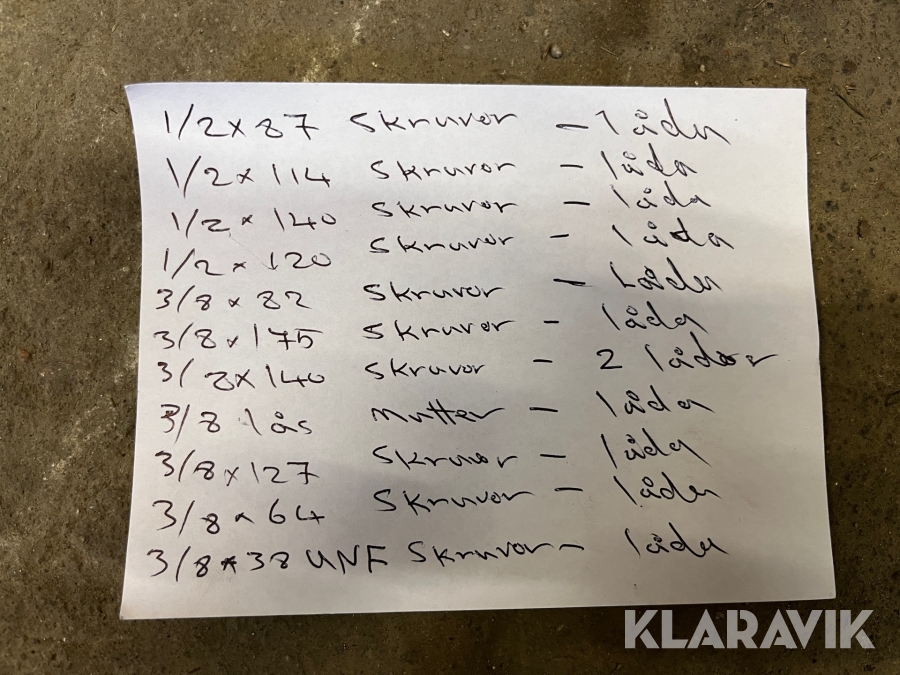 1/2 x 87 skruvor - låda
1/2 x 114 skruvor - låda
1/2 x 140 skruvor - låda
1/2 x 120 skruvor - låda
3/8 x 82 skruvor - Låda
3/8 x 175 skruvor - låda
3/8 x 140 skruvor - 2 lådor
3/8 lås mutter - låda
3/8 x 127 skruvor - låda
3/8 x 64 skruvor - låda
3/8 x 38 UNF skruvor - låda
KLARAVIK